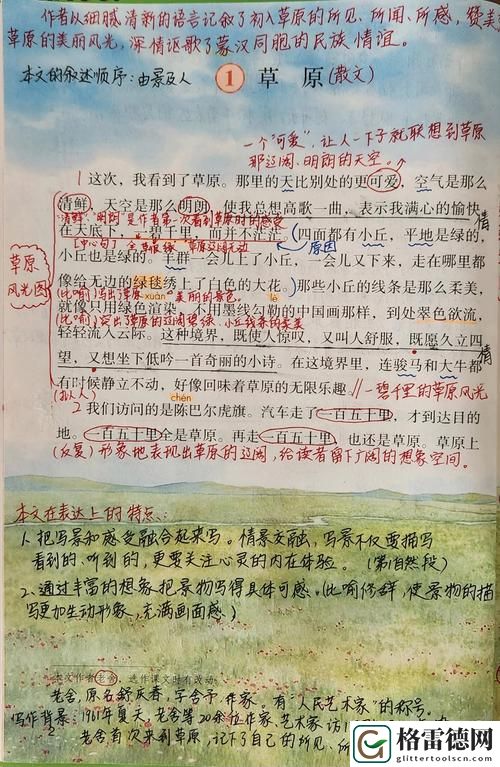 作者从细腻、清新的语言记叙了初入草原的所见、所闻、所感,赞美
草原的美丽风光,深情讴歌了蒙汉同胞的民族情谊。
本文的叙述顺序:由景及人
1 草原(散文)
一个"可爱",让人一下子就联想到草原
那辽阔、明朗的天空。
1 这次,我看到了草原。那里的天比别处的更可爱,空气是那么
清鲜,天空是那么明朗,使我总想高歌一曲,表示我满心的愉快。
情
"清鲜""明朗"是作者第一次看到草原时的感受
在天底下,一碧千里,而并不茫茫。四面都有小丘,平地是绿的,
[中心句] 原因
小丘也是绿的。羊群一会儿上了小丘,一会儿又下来,走在哪里都
草原
风光图
像给无边的绿毯绣上了白色的大花。那些小丘的线条是那么柔美,
(比喻)写出草原 美丽的景色。
xuàn lè
就像只用绿色渲染,不用墨线勾勒的中国画那样,到处翠色欲流,
(比喻)突出了草原的辽阔碧绿、小丘线条的柔美
轻轻流入云际。这种境界,既使人惊叹,又叫人舒服,既愿久立四
望,又想坐下低吟一首奇丽的小诗。在这境界里,连骏马和大牛都
情
有时候静立不动,好像回味着草原的无限乐趣。
一碧千里的草原风光
(拟人)
chén
2 我们访问的是陈巴尔虎旗。汽车走了一百五十里,才到达目的
地。一百五十里全是草原。再走一百五十里,也还是草原。草原上
(反复)形象地表现出草原的辽阔,给读者留下广阔的想象空间。
本文在表达上的特点:
1.把写景和感受融合起来写。情景交融,写景不仅要描写
看到的、听到的,更要关注心灵的内在体验。(第1自然段)
2.通过丰富的想象把景物写得具体可感。(比喻修辞,使景物的描
写更加生动形象,充满画面感)
本文作者老舍,选作课文时有改动。
老舍,原名舒庆春,字舍予,作家。有"人民艺术家"的称号。
写作背景:1961年夏天,老舍等20余位作家、艺术家访
老舍首次来到草原,记下了自己的所见、所
格雷德网
www.glittertoolscn.com